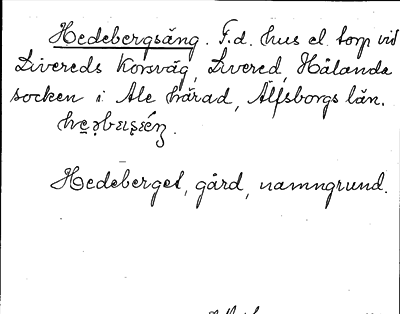 Hedebergsäng. F.d. hus el. torp vid
Livereds Korsväg, Livered, Hålanda
socken i Ale härad, Älfsborgs län.
Hedeberget, gård, namngrund.